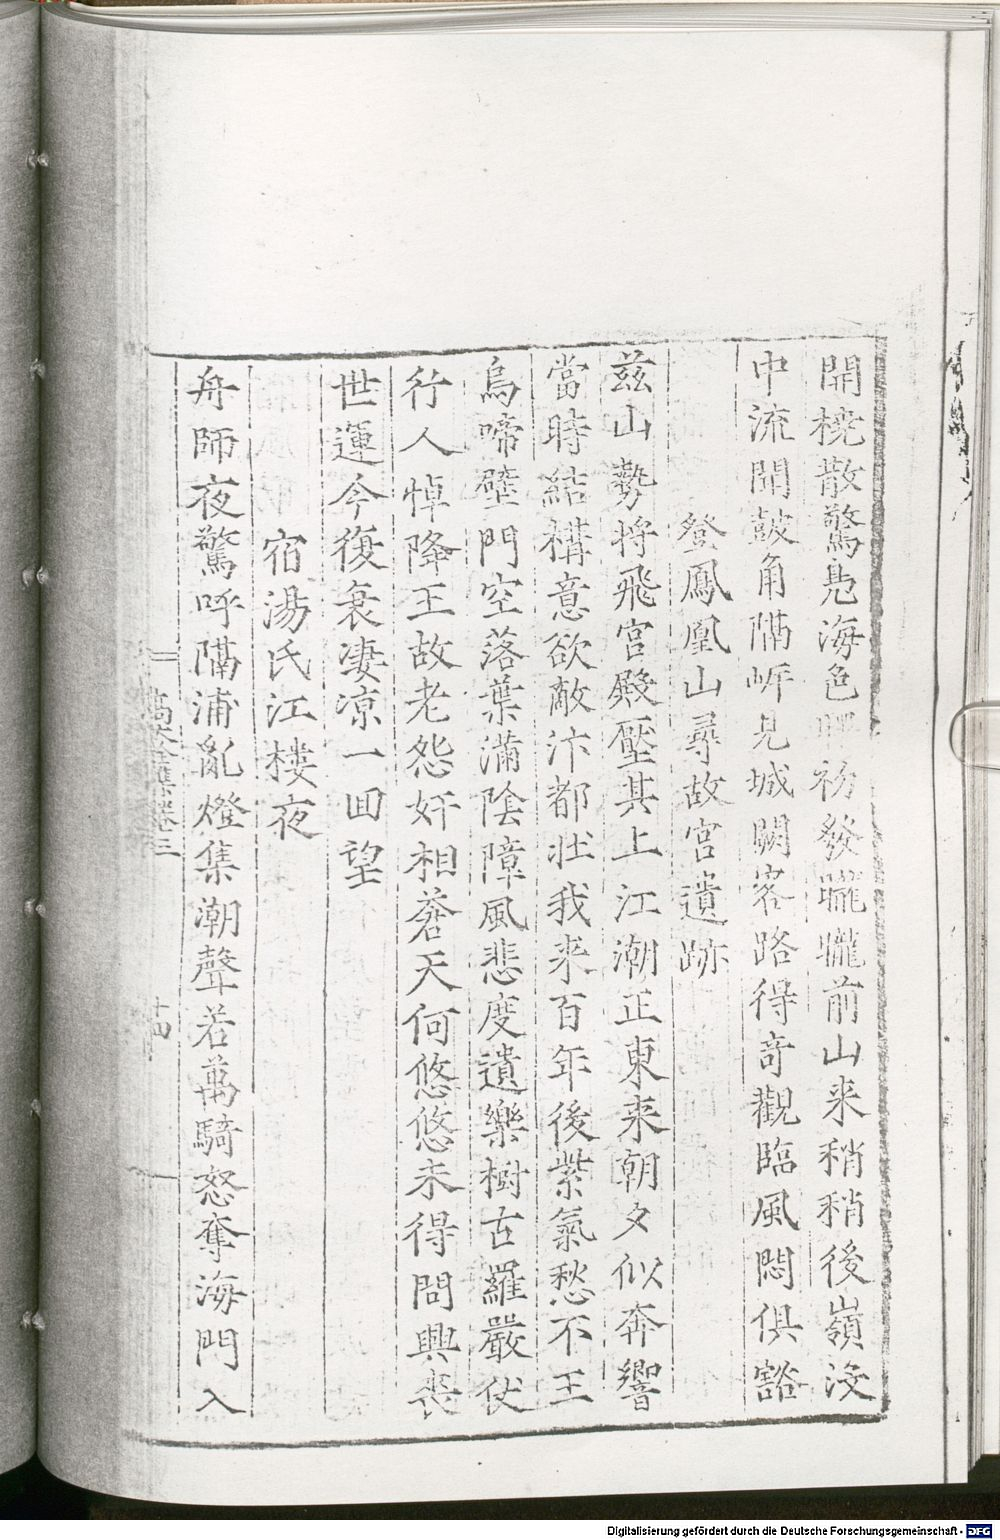 開橈散驚鳧海色初發曨曨前山来稍稍後嶺没
中流聞鼓角隔岍見城闕客路得竒觀臨風悶俱豁
登鳳凰山尋故宮遺跡
兹山勢将飛宮殿壓其上江潮正東来朝夕似奔響
當時結構意欲敵汴都壯我来百年後紫氣愁不王
烏啼壁門空落葉滿陰障風悲度遺樂樹古羅嚴仗
行人悼降王故老怨奸相蒼天何悠悠未得問興喪
世運今復衰凄凉一囬望
宿湯氏江樓夜
舟師夜驚呼隔浦亂燈集潮聲若萬騎怒奪海門入
高太全集卷三
十四
Digitalisierung gefördert durch die Deutsche Forschungsgemeinschaft - DFG